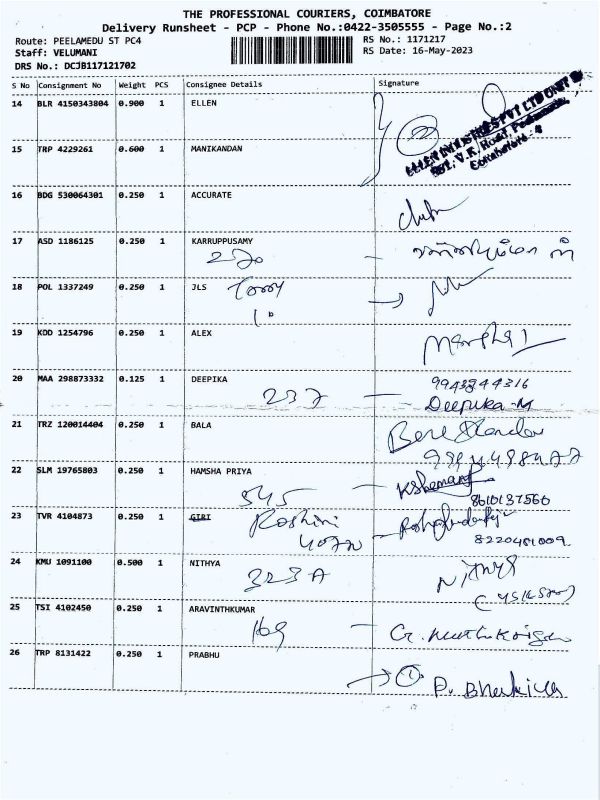 THE PROFESSIONAL COURIERS, COIMBATORE
Delivery Runsheet - PCP - Phone No.:0422-3505555 - Page No.:2
Route: PEELAMEDU ST PC4
RS No.: 1171217
Staff: VELUMANI
RS Date: 16-May-2023
DRS No.: DCJB117121702
S No Consignment No Weight PCS Consignee Details Signature
14 BLR 4150343804 0.900 1 ELLEN
ELLEN INDUSTRIES PVT LTD UNIT
Coimbatore - 4
15 TRP 4229261 0.600 1 MANIKANDAN
16 BDG 530064301 0.250 1 ACCURATE
17 ASD 1186125 0.250 1 KARRUPPUSAMY
270
18 POL 1337249 0.250 1 JLS
19 KDD 1254796 0.250 1 ALEX
20 MAA 298873332 0.125 1 DEEPIKA
237
9943844316
Deepika-M
21 TRZ 120014404 0.250 1 BALA
22 SLM 19765803 0.250 1 HAMSHA PRIYA
545
8610137560
23 TVR 4104873 0.250 1 GIRI
Roshini
8220481009
24 KMU 1091100 0.500 1 NITHYA
323 A
25 TSI 4102450 0.250 1 ARAVINTHKUMAR
169
26 TRP 8131422 0.250 1 PRABHU